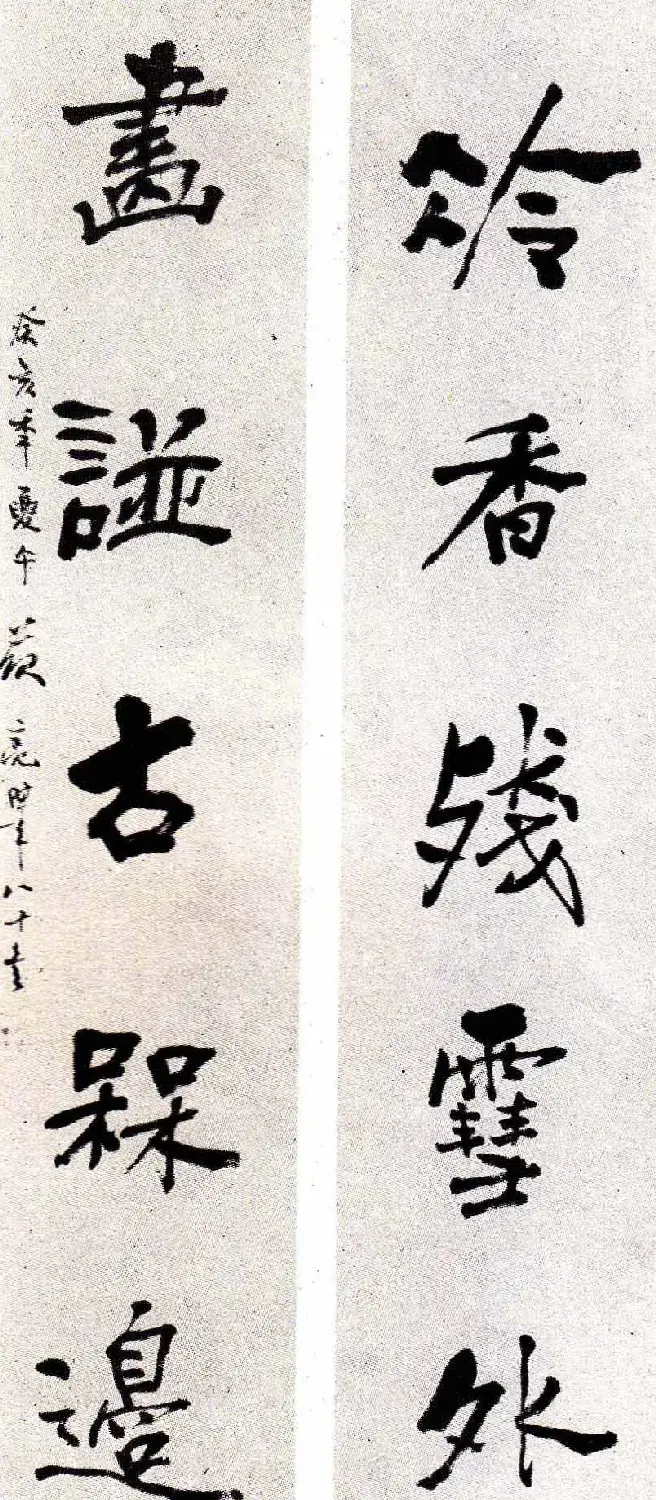 冷香殘䨮外
畫諩古槑邊
癸亥年夏午 亮時年八十